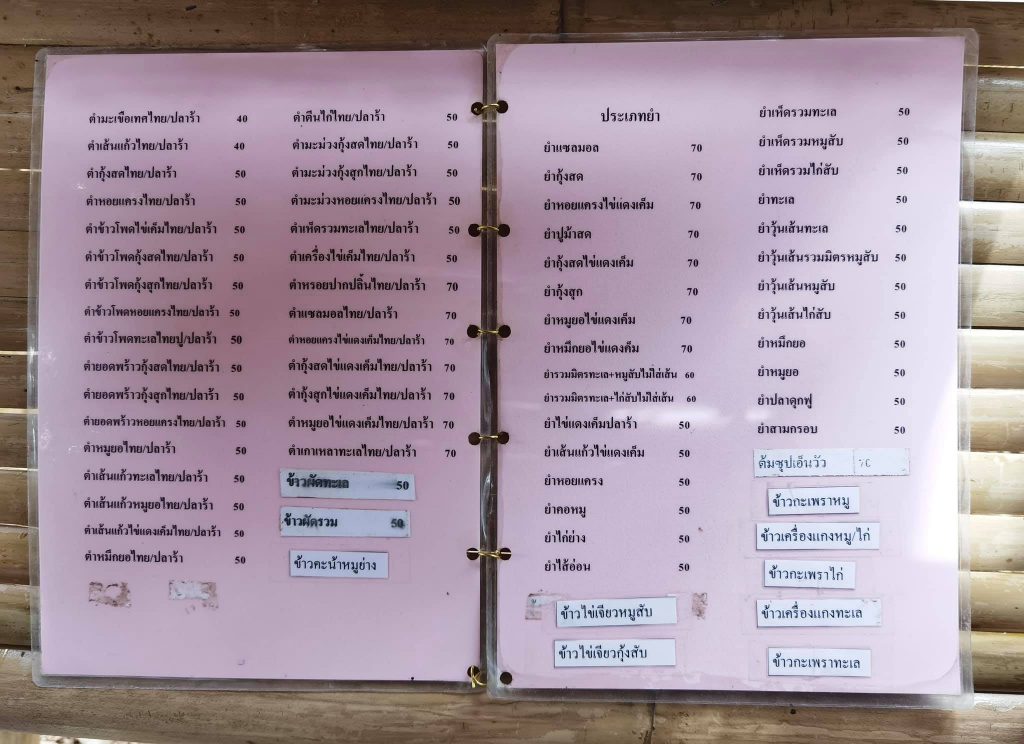 ตำมะเขือเทศไทย/ปลาร้า 40
ตำเส้นแก้วไทย/ปลาร้า 40
ตำกุ้งสดไทย/ปลาร้า 50
ตำหอยแครงไทย/ปลาร้า 50
ตำข้าวโพดไข่เค็มไทย/ปลาร้า 50
ตำข้าวโพดกุ้งสดไทย/ปลาร้า 50
ตำข้าวโพดกุ้งสุกไทย/ปลาร้า 50
ตำข้าวโพดหอยแครงไทย/ปลาร้า 50
ตำข้าวโพดทะเลไทยปู/ปลาร้า 50
ตำยอดพร้าวกุ้งสดไทย/ปลาร้า 50
ตำยอดพร้าวกุ้งสุกไทย/ปลาร้า 50
ตำยอดพร้าวหอยแครงไทย/ปลาร้า 50
ตำหมูยอไทย/ปลาร้า 50
ตำเส้นแก้วทะเลไทย/ปลาร้า 50
ตำเส้นแก้วหมูยอไทย/ปลาร้า 50
ตำเส้นแก้วไข่แดงเค็มไทย/ปลาร้า 50
ตำหมึกยอไทย/ปลาร้า 50
ตำตีนไก่ไทย/ปลาร้า 50
ตำมะม่วงกุ้งสดไทย/ปลาร้า 50
ตำมะม่วงกุ้งสุกไทย/ปลาร้า 50
ตำมะม่วงหอยแครงไทย/ปลาร้า 50
ตำเห็ดรวมทะเลไทย/ปลาร้า 50
ตำเครื่องไข่เค็มไทย/ปลาร้า 50
ตำหรอยปากปลิ้นไทย/ปลาร้า 70
ตำแซลมอลไทย/ปลาร้า 70
ตำหอยแครงไข่แดงเค็มไทย/ปลาร้า 70
ตำกุ้งสดไข่แดงเค็มไทย/ปลาร้า 70
ตำกุ้งสุกไข่แดงเค็มไทย/ปลาร้า 70
ตำหมูยอไข่แดงเค็มไทย/ปลาร้า 70
ตำเกาเหลาทะเลไทย/ปลาร้า 70
ข้าวผัดทะเล 50
ข้าวผัดรวม 50
ข้าวคะน้าหมูย่าง
ประเภทยำ
ยำแซลมอล 70
ยำกุ้งสด 70
ยำหอยแครงไข่แดงเค็ม 70
ยำปูม้าสด 70
ยำกุ้งสดไข่แดงเค็ม 70
ยำกุ้งสุก 70
ยำหมูยอไข่แดงเค็ม 70
ยำหมึกยอไข่แดงค็ม 70
ยำรวมมิตรทะเล+หมูสับไม่ใส่เส้น 60
ยำรวมมิตรทะเล+ไก่สับไม่ใส่เส้น 60
ยำไข่แดงเค็มปลาร้า 50
ยำเส้นแก้วไข่แดงเค็ม 50
ยำหอยแครง 50
ยำคอหมู 50
ยำไก่ย่าง 50
ยำไส้อ่อน 50
ข้าวไข่เจียวหมูสับ
ข้าวไข่เจียวกุ้งสับ
ยำเห็ดรวมทะเล 50
ยำเห็ดรวมหมูสับ 50
ยำเห็ดรวมไก่สับ 50
ยำทะเล 50
ยำวุ้นเส้นทะเล 50
ยำวุ้นเส้นรวมมิตรหมูสับ 50
ยำวุ้นเส้นหมูสับ 50
ยำวุ้นเส้นไก่สับ 50
ยำหมึกยอ 50
ยำหมูยอ 50
ยำปลาดุกฟู 50
ยำสามกรอบ 50
ต้มซุปเอ็นวัว
ข้าวกะเพราหมู
ข้าวเครื่องแกงหมู/ไก่
ข้าวกะเพราไก่
ข้าวเครื่องแกงทะเล
ข้าวกะเพราทะเล